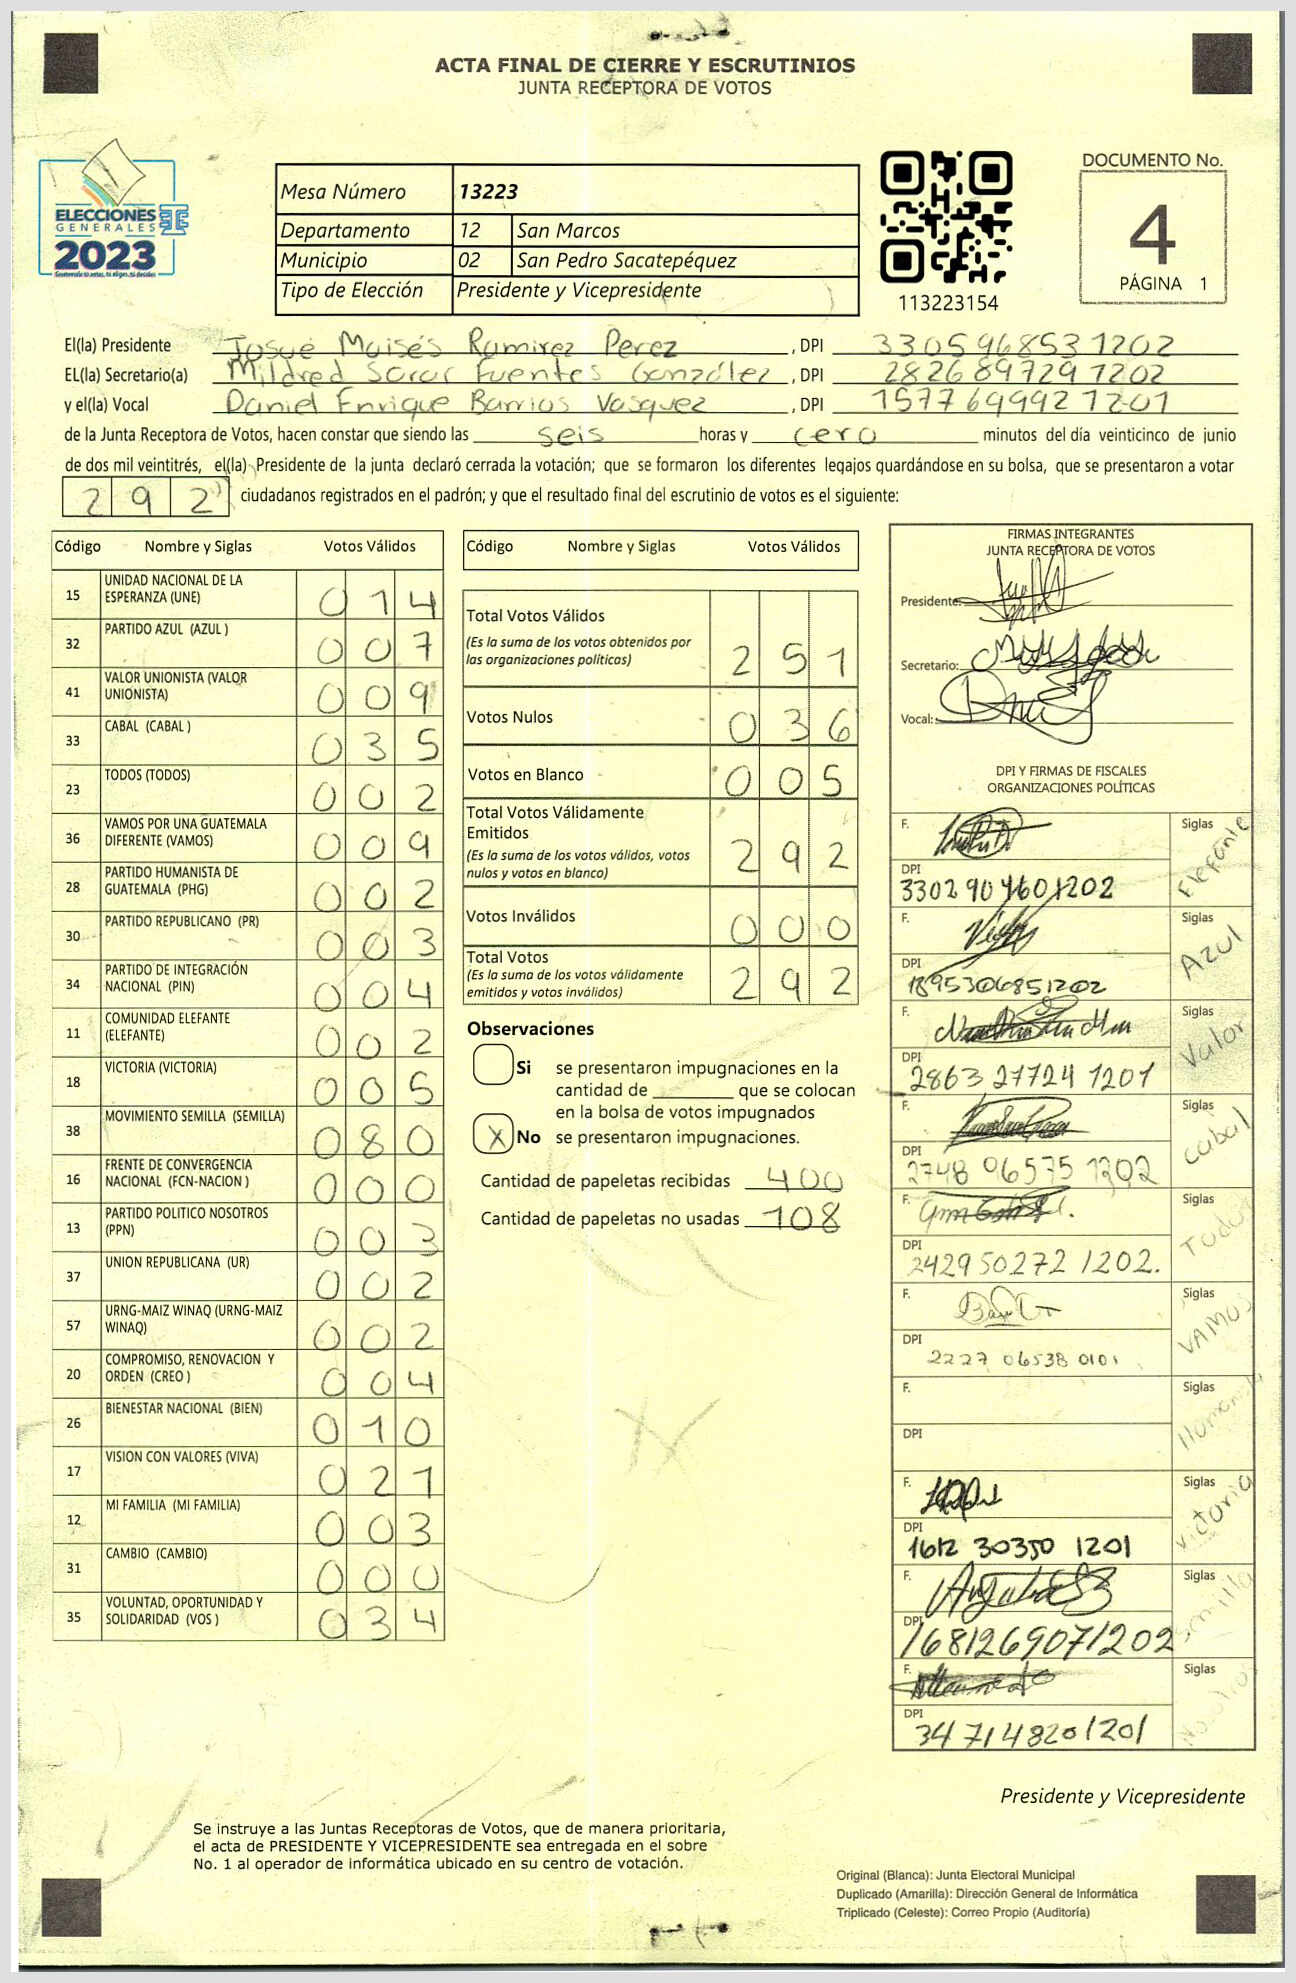 ACTA FINAL DE CIERRE Y ESCRUTINIOS
JUNTA RECEPTORA DE VOTOS
ELECCIONES
GENERALES
2023
Mesa Número 13223
Departamento 12 San Marcos
Municipio 02 San Pedro Sacatepéquez
Tipo de Elección Presidente y Vicepresidente
113223154
DOCUMENTO No.
4
PÁGINA 1
El(la) Presidente Josué Moisés Ramirez Perez , DPI 3305968531202
EL(la) Secretario(a) Mildred Sarai Fuentes González , DPI 2826897291202
y el(la) Vocal Daniel Enrique Barrios Vasquez , DPI 1577699921201
de la Junta Receptora de Votos, hacen constar que siendo las seis horas y cero minutos del día veinticinco de junio
de dos mil veintitrés, el(la) Presidente de la junta declaró cerrada la votación; que se formaron los diferentes legajos guardándose en su bolsa, que se presentaron a votar
292 ciudadanos registrados en el padrón; y que el resultado final del escrutinio de votos es el siguiente:
Código Nombre y Siglas Votos Válidos
15 UNIDAD NACIONAL DE LA ESPERANZA (UNE) 014
32 PARTIDO AZUL (AZUL ) 007
41 VALOR UNIONISTA (VALOR UNIONISTA) 009
33 CABAL (CABAL ) 035
23 TODOS (TODOS) 002
36 VAMOS POR UNA GUATEMALA DIFERENTE (VAMOS) 009
28 PARTIDO HUMANISTA DE GUATEMALA (PHG) 002
30 PARTIDO REPUBLICANO (PR) 003
34 PARTIDO DE INTEGRACIÓN NACIONAL (PIN) 004
11 COMUNIDAD ELEFANTE (ELEFANTE) 002
18 VICTORIA (VICTORIA) 005
38 MOVIMIENTO SEMILLA (SEMILLA) 080
16 FRENTE DE CONVERGENCIA NACIONAL (FCN-NACION ) 000
13 PARTIDO POLITICO NOSOTROS (PPN) 003
37 UNION REPUBLICANA (UR) 002
57 URNG-MAIZ WINAQ (URNG-MAIZ WINAQ) 002
20 COMPROMISO, RENOVACION Y ORDEN (CREO ) 004
26 BIENESTAR NACIONAL (BIEN) 010
17 VISION CON VALORES (VIVA) 021
12 MI FAMILIA (MI FAMILIA) 003
31 CAMBIO (CAMBIO) 000
35 VOLUNTAD, OPORTUNIDAD Y SOLIDARIDAD (VOS ) 034
Código Nombre y Siglas Votos Válidos
Total Votos Válidos 251
(Es la suma de los votos obtenidos por
las organizaciones políticas)
Votos Nulos 036
Votos en Blanco 005
Total Votos Válidamente
Emitidos 292
(Es la suma de los votos válidos, votos
nulos y votos en blanco)
Votos Inválidos 000
Total Votos 292
(Es la suma de los votos válidamente
emitidos y votos inválidos)
Observaciones
Si se presentaron impugnaciones en la
cantidad de ________ que se colocan
en la bolsa de votos impugnados
X No se presentaron impugnaciones.
Cantidad de papeletas recibidas 400
Cantidad de papeletas no usadas 108
FIRMAS INTEGRANTES
JUNTA RECEPTORA DE VOTOS
Presidente:
Secretario:
Vocal:
DPI Y FIRMAS DE FISCALES
ORGANIZACIONES POLÍTICAS
F. Siglas Elefante
DPI
F. Siglas Azul
DPI
1895306851202
F. Siglas Valor
DPI
2863 27724 1201
F. Siglas Cabal
DPI
2748 06575 1202
F. Siglas Todos
DPI
242950272 1202.
F. Siglas VAMOS
DPI
2227 06538 0101
F. Siglas
DPI
F. Siglas Victoria
DPI
1612 30350 1201
F. Siglas Semilla
DPI
1681269071202
F. Siglas
DPI
3471148201201
Presidente y Vicepresidente
Se instruye a las Juntas Receptoras de Votos, que de manera prioritaria,
el acta de PRESIDENTE Y VICEPRESIDENTE sea entregada en el sobre
No. 1 al operador de informática ubicado en su centro de votación.
Original (Blanca): Junta Electoral Municipal
Duplicado (Amarilla): Dirección General de Informática
Triplicado (Celeste): Correo Propio (Auditoría)